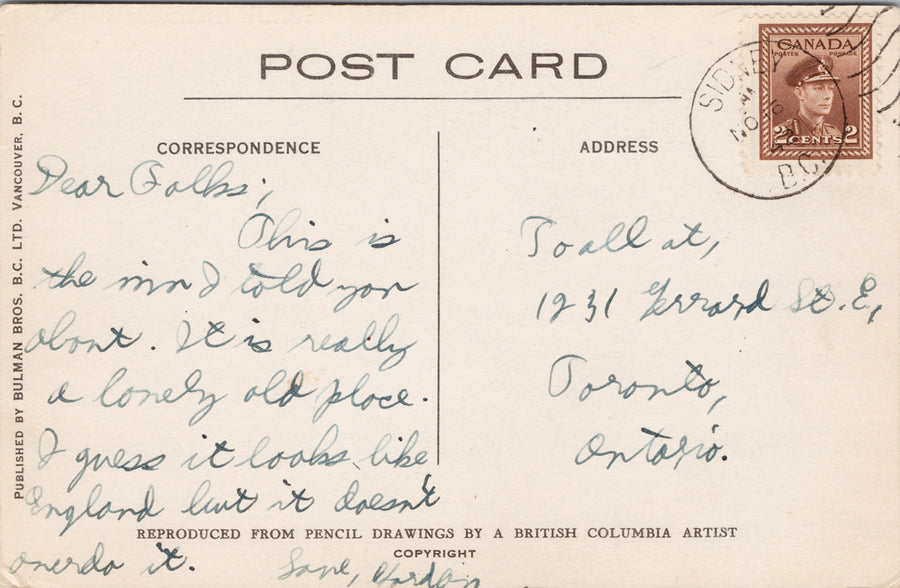 POST CARD
CORRESPONDENCE
ADDRESS
CANADA
POSTES POSTAGE
2 CENTS 2
SIDNEY
NO
B.C.
Dear Folks;
This is
the inn I told you
about. It is really
a lonely old place.
I guess it looks like
England but it doesn't
overdo it.
Love, Gordon
To all at,
1231 Gerrard St. E,
Toronto,
Ontario.
PUBLISHED BY BULMAN BROS. B.C. LTD. VANCOUVER, B. C.
REPRODUCED FROM PENCIL DRAWINGS BY A BRITISH COLUMBIA ARTIST
COPYRIGHT